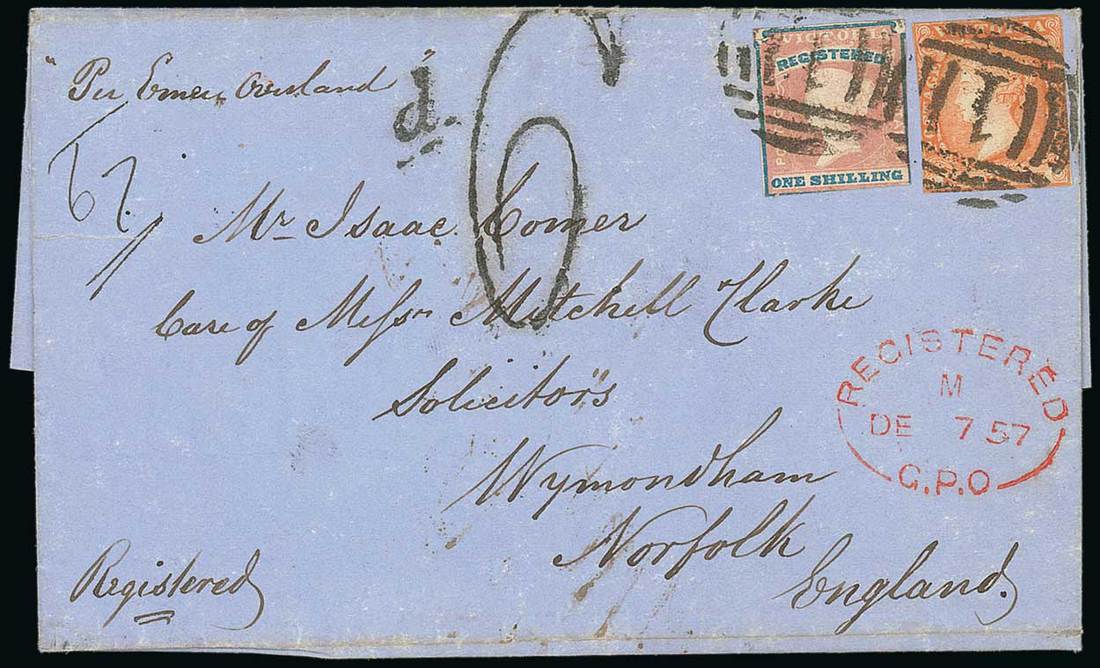 "Per Emeu Overland"
d. 6
67.
VICTORIA
REGISTERED
ONE SHILLING
VICTORIA
Mr Isaac Comer
Care of Messrs Mitchell Clarke
Solicitors
Wymondham
Norfolk
England.
Registered
REGISTERED
M
DE 7 57
G.P.O